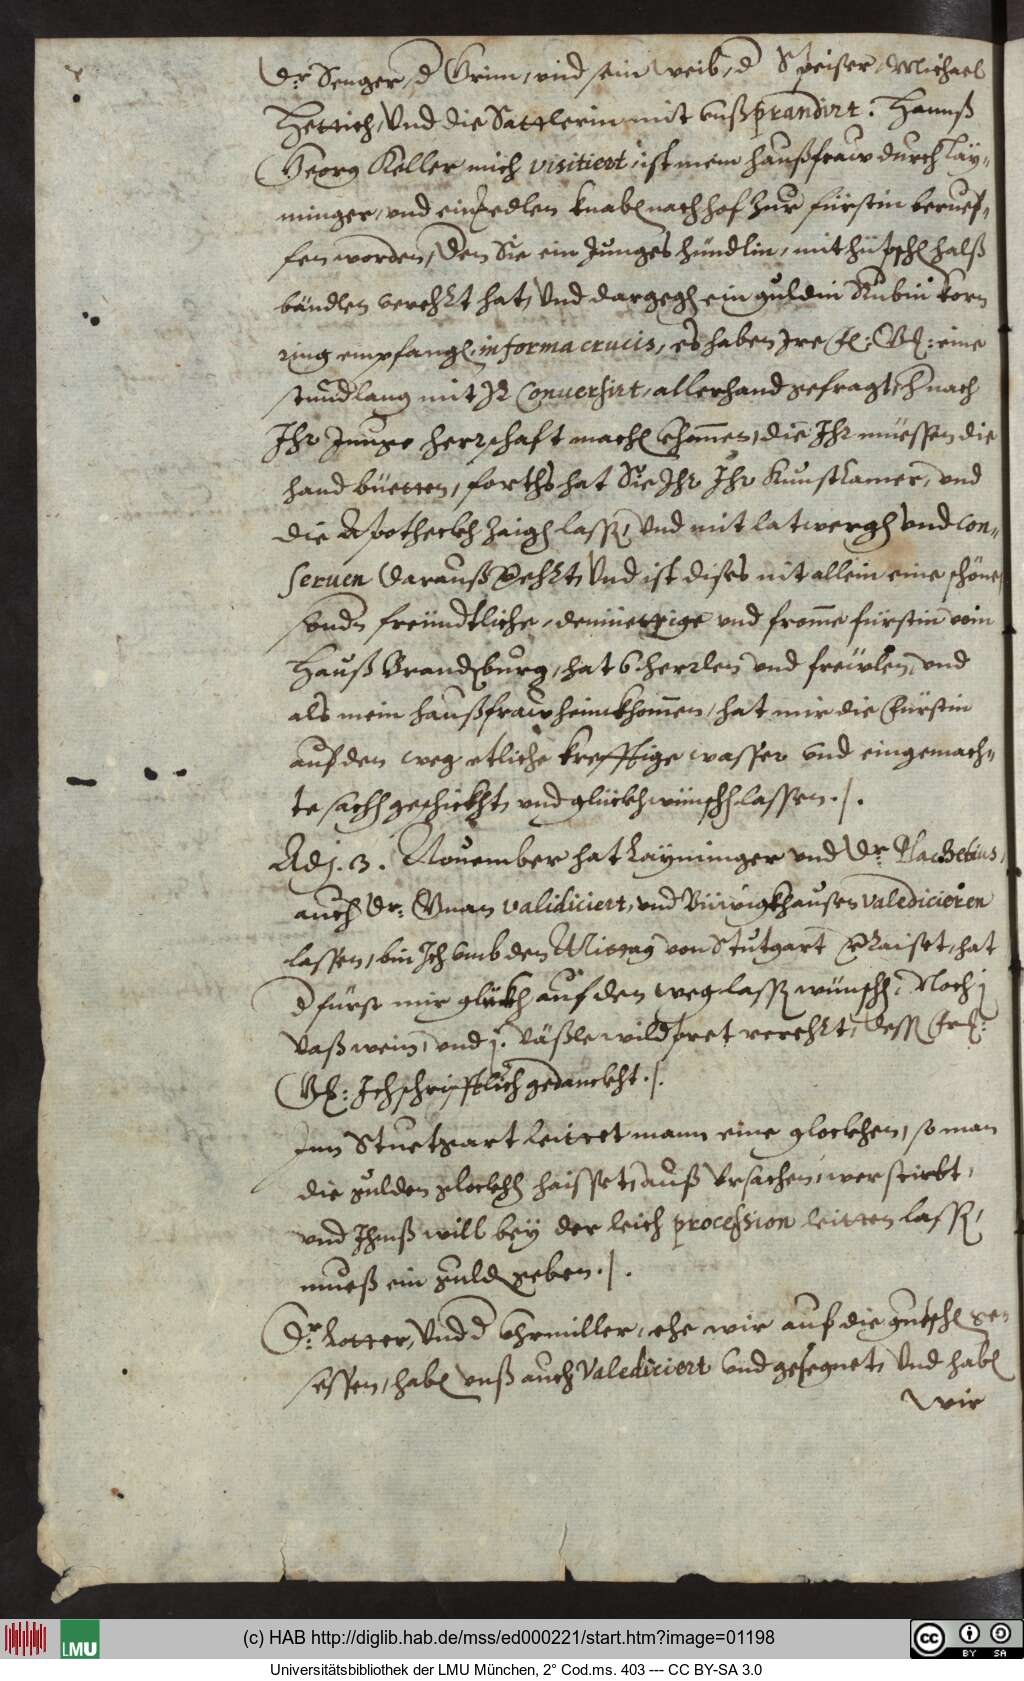 Dr: Senger, d Grim, vnd sein weib, d Speiser, Michael
Hettich, Vnd die Sattlerin mit vnß prandirt. Hannß
Georg Keller mich visitiert, ist mein haußfraw durch Lay-
minger, vnd ein Edlen knaben nach hof zur fürstin beruef-
fen worden, Den Sie ein Junges hündlin, mit hüpschen halß
bändlen verehrt hat, Vnd dargegen ein guldin Rubin korn
ring empfangen, in forma crucis, es haben Jre fl: Gl: eine
stund lang mit Jr Conuersirt, allerhand gefragt, nach
Ihr Junge herrschaft machen khommen, die Ihr müessen die
hand büetten, forths hat Sie Ihr Ihr Kunst Camer, vnd
die Apotheckh zaigen lassen, Vnd mit latwergen vnd Con-
seruen darauß verehrt, Vnd ist dises nit allein eine schöne
sondern freündtliche, demüettige vnd fromme fürstin vom
Hauß Brandenburg, hat 6 herrlen vnd freülen, vnd
als mein haußfraw heimkhommen, hat mir die Fürstin
auf den weg etliche krefftige wasser vnd eingemach-
te sachen geschickht, vnd glückh wünschen lassen ./.
Adj. 3. Nouember hat Layminger vnd Dr: Placetius,
auch Dr: validiciert, vnd Büwigkhausen valedicieren
lassen, bin Ich vmb den Mittag von Stutgart verraiset, hat
d fürst mir glükh auf den weg lassen wünschen, Noch j
Vaß wein, vnd j. väßle wildpret verehrt, dessen fr:
Gl: Ich schrifftlich gedanckht ./.
Inn Stuetgart leittet mann eine glockhen, so man
die gulden glockhen haisset, auß Vrsachen, wer stirbt,
vnd Ihms will bey der leich procession leitten lassen,
mueß ein gulden geben ./.
Dr: Rotter, Vnd d Vhrmiller, ehe wir auf die gutschen ge-
sessen, haben vnß auch Valediciert vnd gesegnet, Vnd haben
wir
LMU
(c) HAB http://diglib.hab.de/mss/ed000221/start.htm?image=01198
cc BY SA
Universitätsbibliothek der LMU München, 2° Cod.ms. 403 --- CC BY-SA 3.0